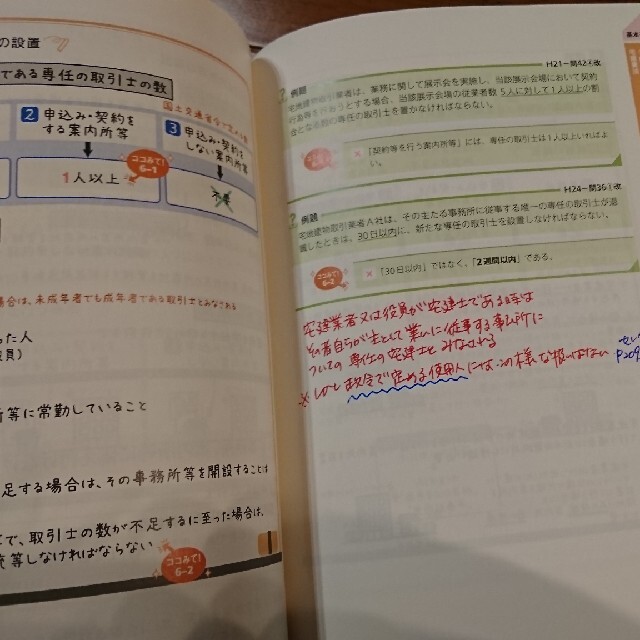 の設置
である専任の取引士の数
国土交通省令で定める
2 申込み・契約を
する案内所等
3 申込み・契約を
しない案内所等
ココみて!
6-1
1人以上
場合は、未成年者でも成年者である取引士とみなされる
った人
役員)
所等に常勤していること
足する場合は、その事務所等を開設することは
て、取引士の数が不足するに至った場合は、
充等しなければならない
ココみて!
6-2
基本
? 例題
H21-問42④改
宅地建物取引業者は、業務に関して展示会を実施し、当該展示会場において契約
行為等を行おうとする場合、当該展示会場の従業者数5人に対して1人以上の割
合となる数の専任の取引士を置かなければならない。
× 「契約等を行う案内所等」には、専任の取引士は1人以上いればよ
い。
? 例題
H24-問36①改
宅地建物取引業者A社は、その主たる事務所に従事する唯一の専任の取引士が退
職したときは、30日以内に、新たな専任の取引士を設置しなければならない。
ココみて!
6-2
× 「30日以内」ではなく、「2週間以内」である。
宅建業者又は役員が宅建士である時は
その者自らが主として業ムに従事する事ム所に
ついての専任の宅建士とみなされる
※しかし政令で定める使用人にはこの様な扱いはない
P209